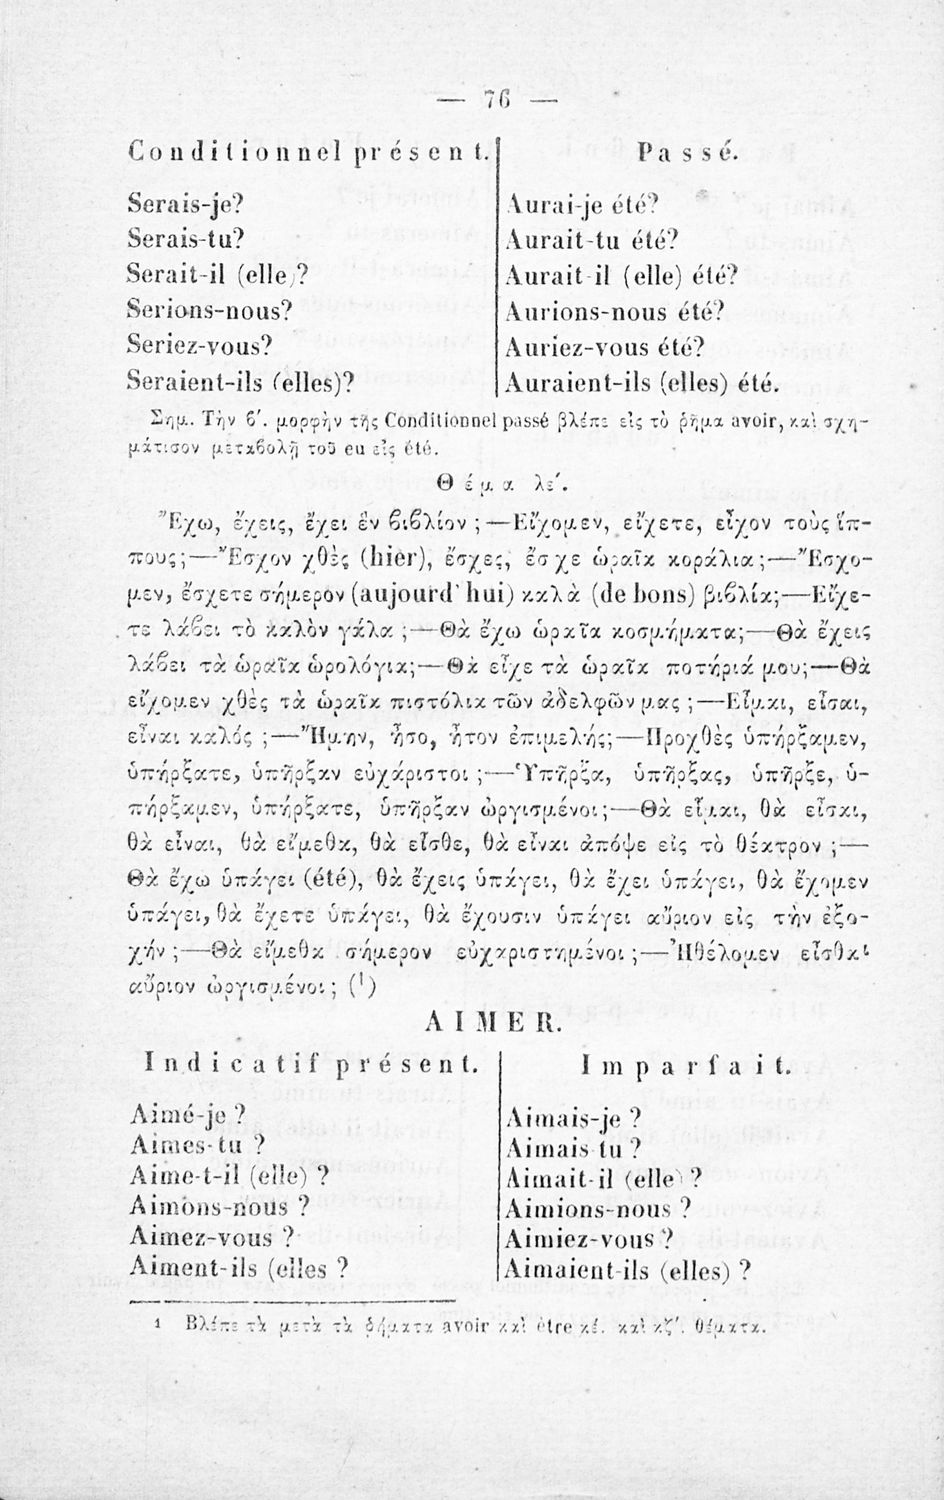 — 76 —
Conditionnel présent.
Serais-je?
Serais-tu?
Serait-il (elle)?
Serions-nous?
Seriez-vous?
Seraient-ils (elles)?
Passé.
Aurai-je été?
Aurait-tu été?
Aurait-il (elle) été?
Aurions-nous été?
Auriez-vous été?
Auraient-ils (elles) été.
Σημ. Τὴν β΄. μορφὴν τῆς Conditionnel passé βλέπε εἰς τὸ ῥῆμα avoir, καὶ σχη-
μάτισον μεταβολῇ τοῦ eu εἰς été.
Θέμα λε΄.
Ἔχω, ἔχεις, ἔχει ἓν βιβλίον ;—Εἴχομεν, εἴχετε, εἶχον τοὺς ἵπ-
πους;—Ἔσχον χθὲς (hier), ἔσχες, ἔσχε ὡραῖα κοράλια;—Ἔσχο-
μεν, ἔσχετε σήμερον (aujourd'hui) καλὰ (de bons) βιβλία;—Εἴχε-
τε λάβει τὸ καλὸν γάλα ;—Θὰ ἔχω ὡραῖα κοσμήματα;—Θὰ ἔχεις
λάβει τὰ ὡραῖα ὡρολόγια;—Θὰ εἶχε τὰ ὡραῖα ποτήριά μου;—Θὰ
εἴχομεν χθὲς τὰ ὡραῖα πιστόλια τῶν ἀδελφῶν μας ;—Εἶμαι, εἶσαι,
εἶναι καλός ;—Ἤμην, ἦσο, ἦτον ἐπιμελής;—Προχθὲς ὑπήρξαμεν,
ὑπήρξατε, ὑπῆρξαν εὐχάριστοι ;—Ὑπῆρξα, ὑπῆρξας, ὑπῆρξε, ὑ-
πήρξαμεν, ὑπήρξατε, ὑπῆρξαν ὠργισμένοι;—Θὰ εἶμαι, θὰ εἶσαι,
θὰ εἶναι, θὰ εἴμεθα, θὰ εἶσθε, θὰ εἶναι ἀπόψε εἰς τὸ θέατρον ;—
Θὰ ἔχω ὑπάγει (été), θὰ ἔχεις ὑπάγει, θὰ ἔχει ὑπάγει, θὰ ἔχομεν
ὑπάγει, θὰ ἔχετε ὑπάγει, θὰ ἔχουσιν ὑπάγει αὔριον εἰς τὴν ἐξο-
χήν ;—Θὰ εἴμεθα σήμερον εὐχαριστημένοι ;—Ἠθέλομεν εἶσθαι
αὔριον ὠργισμένοι ; (1)
AIMER.
Indicatif présent.
Aimé-je ?
Aimes-tu ?
Aime-t-il (elle) ?
Aimons-nous ?
Aimez-vous ?
Aiment-ils (elles ?
Imparfait.
Aimais-je ?
Aimais tu ?
Aimait-il (elle) ?
Aimions-nous ?
Aimiez-vous ?
Aimaient-ils (elles) ?
1 Βλέπε τὰ μετὰ τὰ ῥήματα avoir καὶ être κέ. καὶ κζ΄. θέματα.